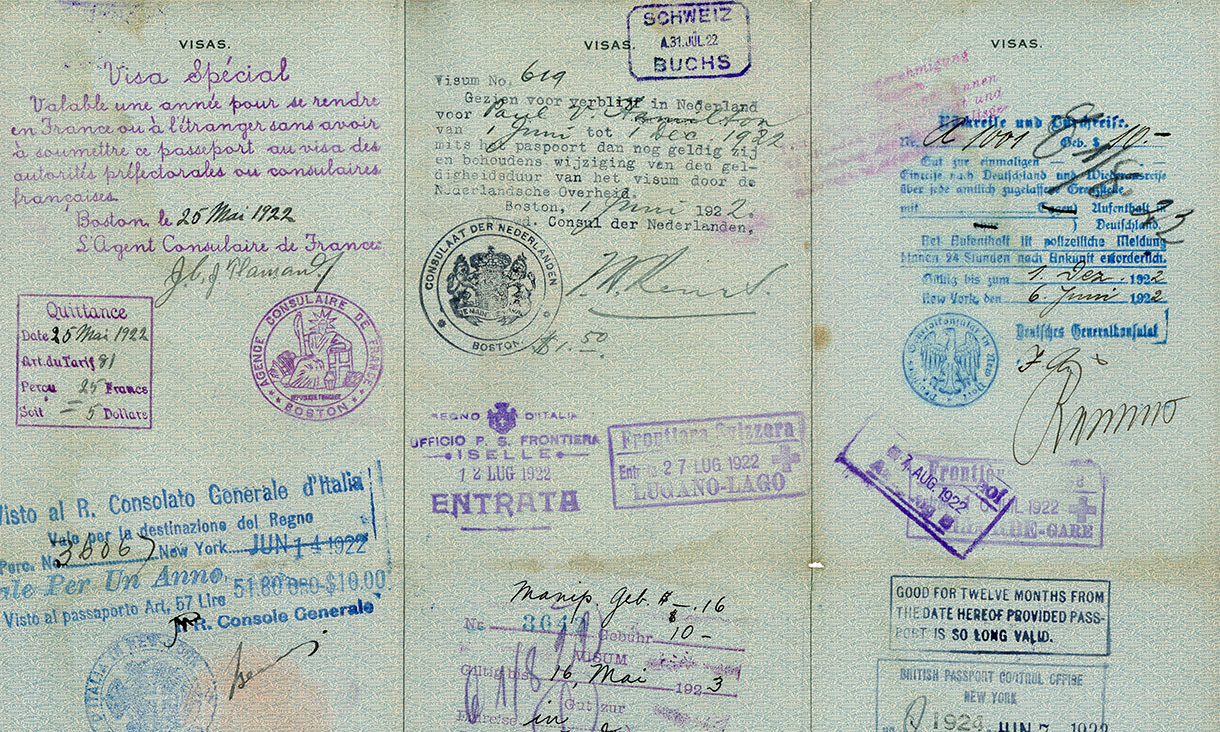 VISAS.
Visa Spécial
Valable une année pour se rendre
en France ou à l'étranger sans avoir
à soumettre ce passeport au visa des
autorités préfectorales ou consulaires
françaises.
Boston, le 25 Mai 1922
L'Agent Consulaire de France
Quittance
Date 25 Mai 1922
Art. du Tarif 81
Perçu 25 Francs
Soit = 5 Dollars
AGENCE CONSULAIRE DE FRANCE
REPUBLIQUE FRANÇAISE
BOSTON
Visto al R. Consolato Generale d'Italia
Vale per la destinazione del Regno
Perc. No. 36067 New York JUN 14 1922
Vale Per Un Anno, 51.80 ORO-$10.00
Visto al passaporto Art, 57 Lire
Il R. Console Generale
D'ITALIA IN NEW YORK
VISAS.
SCHWEIZ
A.31.JUL.22
BUCHS
Visum No. 619
Gezien voor verblijf in Nederland
voor Paul V.
van 1 Juni tot 1 Dec 1922.
mits het paspoort dan nog geldig zij
en behoudens wijziging van den gel-
digheidsduur van het visum door de
Nederlandsche Overheid.
Boston, 1 Juni 1922.
Consul der Nederlanden,
CONSULAAT DER NEDERLANDEN
BOSTON
$1.50
REGNO D'ITALIA
UFFICIO P. S. FRONTIERA
ISELLE
12 LUG 1922
ENTRATA
Frontiera Svizzera
27 LUG 1922
LUGANO-LAGO
Manip. Geb. $ -.16
No
Gebühr $ 10-
VISUM
Gültig bis 16, Mai 1923
Gut zur
Einreise in
VISAS.
Einreise und Durchreise.
Nr. A 1001 Geb. $ 10.-
Gut zur einmaligen
Einreise nach Deutschland und Wiederausreise
über jede amtlich zugelassene Grenzstelle
mit Aufenthalt in
Deutschland.
Bei Aufenthalt ist polizeiliche Meldung
binnen 24 Stunden nach Ankunft erforderlich.
Gültig bis zum 1. Dez 1922
New York, den 6. Juni 1922
Deutsches Generalkonsulat
7. AUG 1922
1922
-GARE
GOOD FOR TWELVE MONTHS FROM
THE DATE HEREOF PROVIDED PASS-
PORT IS SO LONG VALID.
BRITISH PASSPORT CONTROL OFFICE
NEW YORK
JUN 7 1922